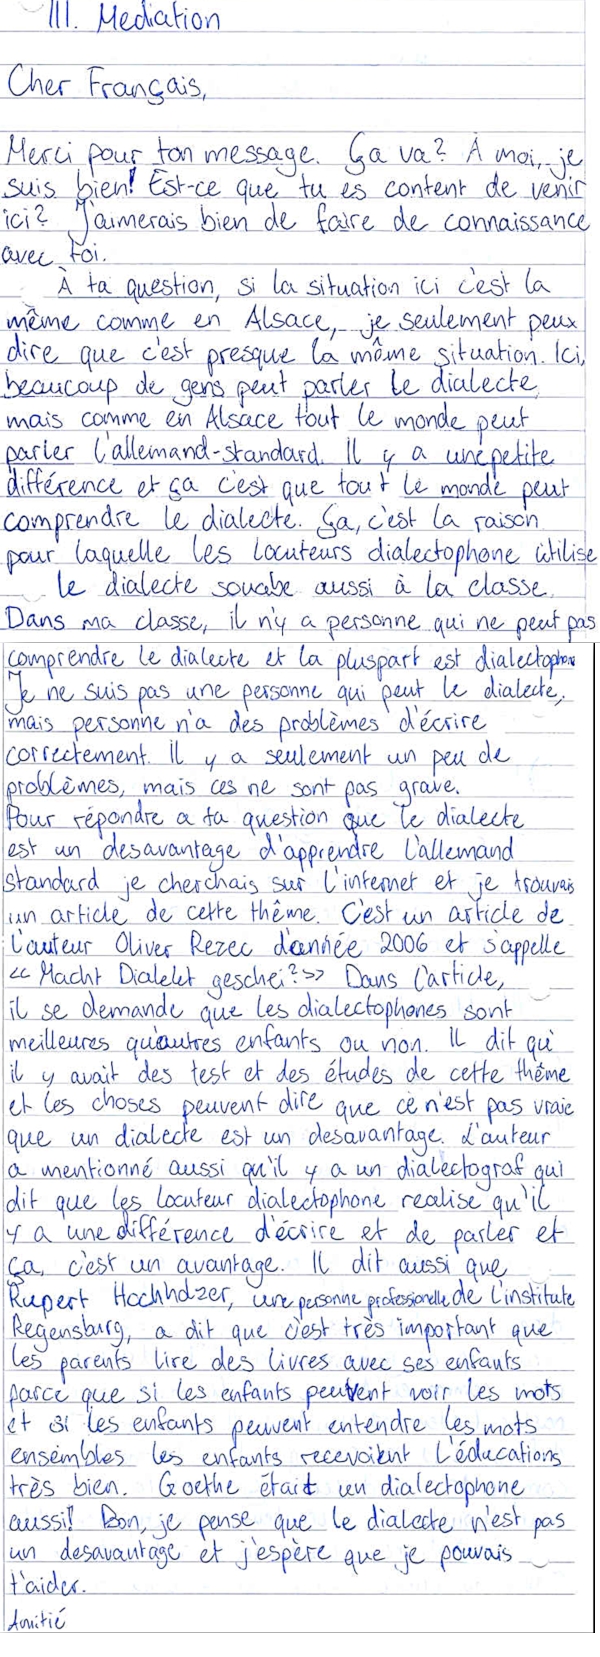 III. Mediation
Cher Français,
Merci pour ton message. Ça va? À moi, je
suis bien! Est-ce que tu es content de venir
ici? J'aimerais bien de faire de connaissance
avec toi.
À ta question, si la situation ici c'est la
même comme en Alsace, je seulement peux
dire que c'est presque la même situation. Ici,
beaucoup de gens peut parler le dialecte,
mais comme en Alsace tout le monde peut
parler l'allemand-standard. Il y a une petite
différence et ça c'est que tout le monde peut
comprendre le dialecte. Ça, c'est la raison
pour laquelle les locuteurs dialectophone utilise
le dialecte souabe aussi à la classe.
Dans ma classe, il n'y a personne qui ne peut pas
comprendre le dialecte et la pluspart est dialectophone
Je ne suis pas une personne qui peut le dialecte,
mais personne n'a des problèmes d'écrire
correctement. Il y a seulement un peu de
problèmes, mais ces ne sont pas grave.
Pour répondre a ta question que le dialecte
est un desavantage d'apprendre l'allemand
standard je cherchais sur l'internet et je trouvais
un article de cette thême. C'est un article de
l'auteur Oliver Rezec d'année 2006 et s'appelle
<< Macht Dialekt geschei? >> Dans l'article,
il se demande que les dialectophones sont
meilleures qu'autres enfants ou non. Il dit qu'
il y avait des test et des études de cette thême
et les choses peuvent dire que ce n'est pas vraie
que un dialecte est un desavantage. L'auteur
a mentionné aussi qu'il y a un dialectograf qui
dit que les locuteur dialectophone realise qu'il
y a une différence d'écrire et de parler et
ça, c'est un avantage. Il dit aussi que
Rupert Hochholzer, une personne professionelle de l'institute
Regensburg, a dit que c'est très important que
les parents lire des livres avec ses enfants
parce que si les enfants peuvent voir les mots
et si les enfants peuvent entendre les mots
ensembles les enfants recevoient l'éducations
très bien. Goethe était un dialectophone
aussi! Bon, je pense que le dialecte n'est pas
un desavantage et j'espère que je pouvais
t'aider.
Amitié